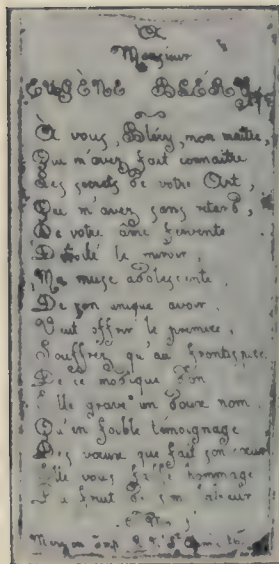 A
Monsieur
EUGÈNE BLÉRY
À vous, Bléry, mon maître,
Qui m'avez fait connaître
Les secrets de votre Art,
Qui m'avez sans retard,
De votre âme fervente
Dévoilé le miroir,
Ma muse adolescente,
De son unique avoir
Veut offrir le premice,
Souffrez qu'au frontispice
De ce modique don
Elle grave un doux nom.
Qu'en faible témoignage
Des vœux que fait son cœur
Elle vous hommage
fruit de
Meryon imp. R.